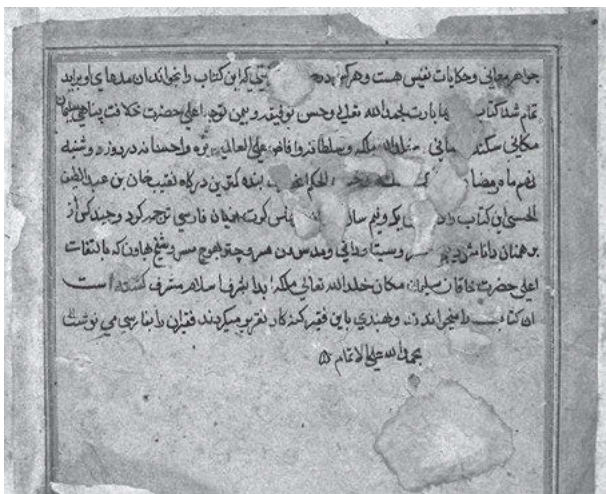 جواهر معانی و حکایات نفیس هست و هرکس که این کتاب را بخواند ان مدهای او براید
تمام شد کتاب مها بارت بحمد الله تعالی و حسن توفیقه و بیمن توجه اعلی حضرت خلافت پناهی سلیمان
مکانی سکند مانی خلد الله ملکه و سلطانه و افاض علی العالمین بره و احسانه در روز دوشنبه
نهم ماه رمضا بنده کمترین درکاه نقیب خان بن عبد اللطیف
الحسنی این کتاب را در یک و نیم سال از هندی فارسی ترجمه کرد و چند کس از
برهمنان دانا مثل دیبی مسر و ستاودانی و مدسدن مسر و چتربهوج مسر و شیخ بهاون که بالتفات
اعلی حضرت خاقان سلیمان مکان خلد الله تعالی ملکه ابدا بشرف اسلام مشرف کشته است
ان کتاب را میخواندند و بهندی باین فقیر کنه کار تقریر میکردند فقیر ان را بفارسی می نوشت
بحمد الله علی الاتمام